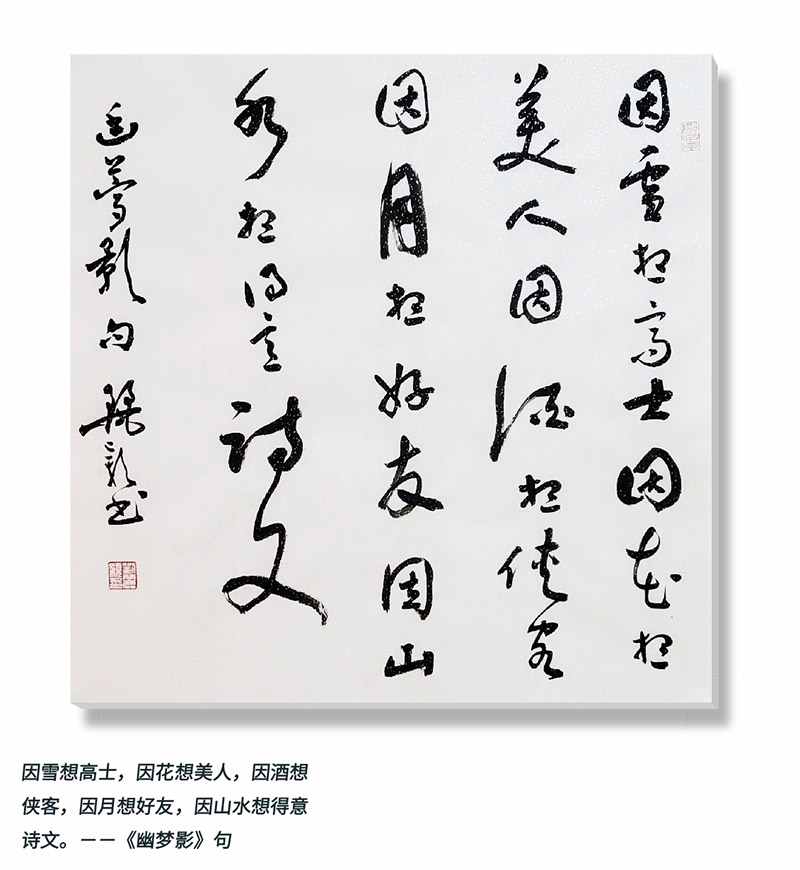 因雪想高士因花想
美人因酒想侠客
因月想好友因山
水想得意诗文
幽梦影句
因雪想高士，因花想美人，因酒想
侠客，因月想好友，因山水想得意
诗文。——《幽梦影》句